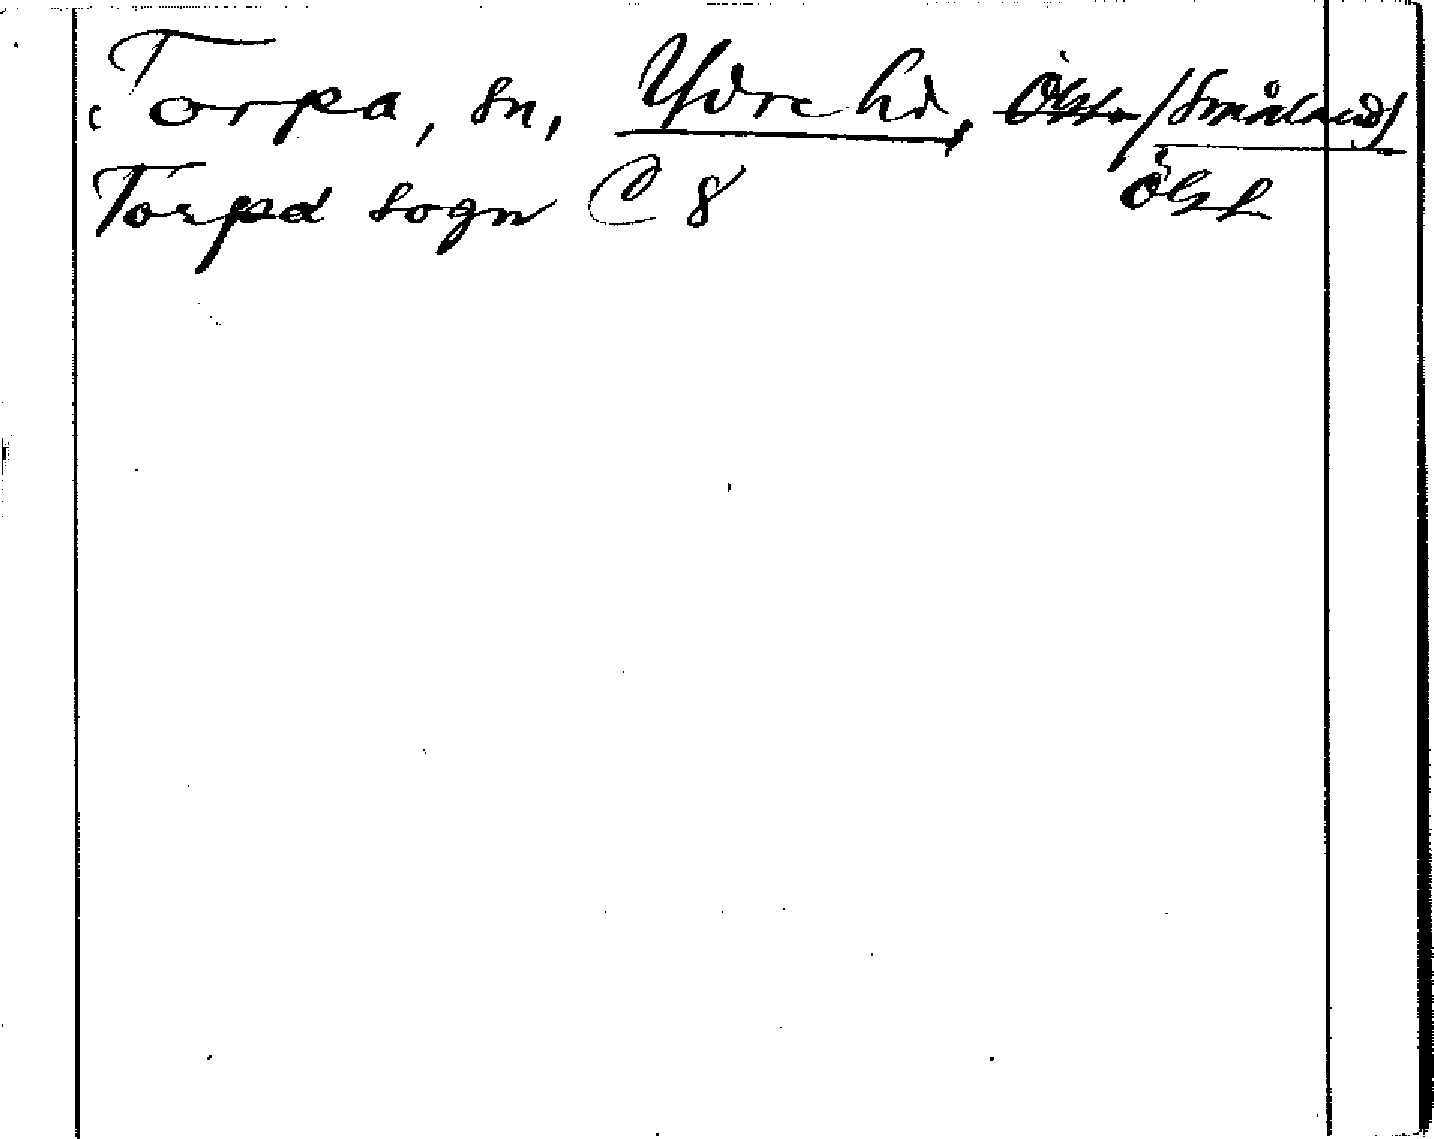 Torpa, sn, Ydre hd, Östg. (Småland)
Torpa sogn C 8 Östg